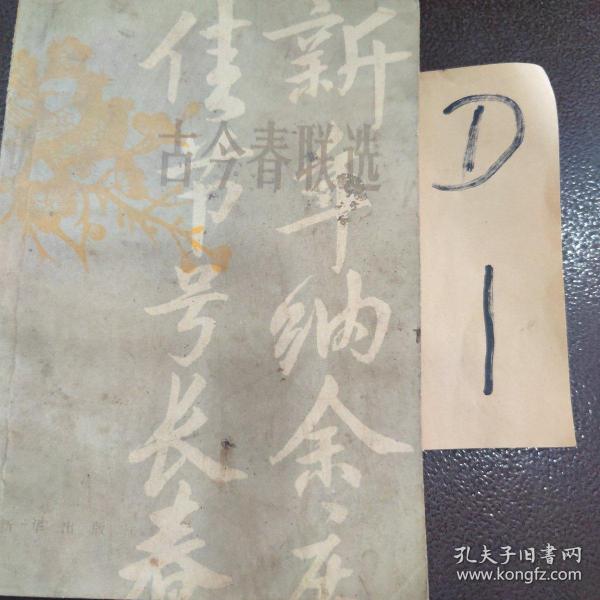 新年纳余庆
佳节号长春
古今春联选
新华出版
D
1
孔夫子旧书网
www.kongfz.com